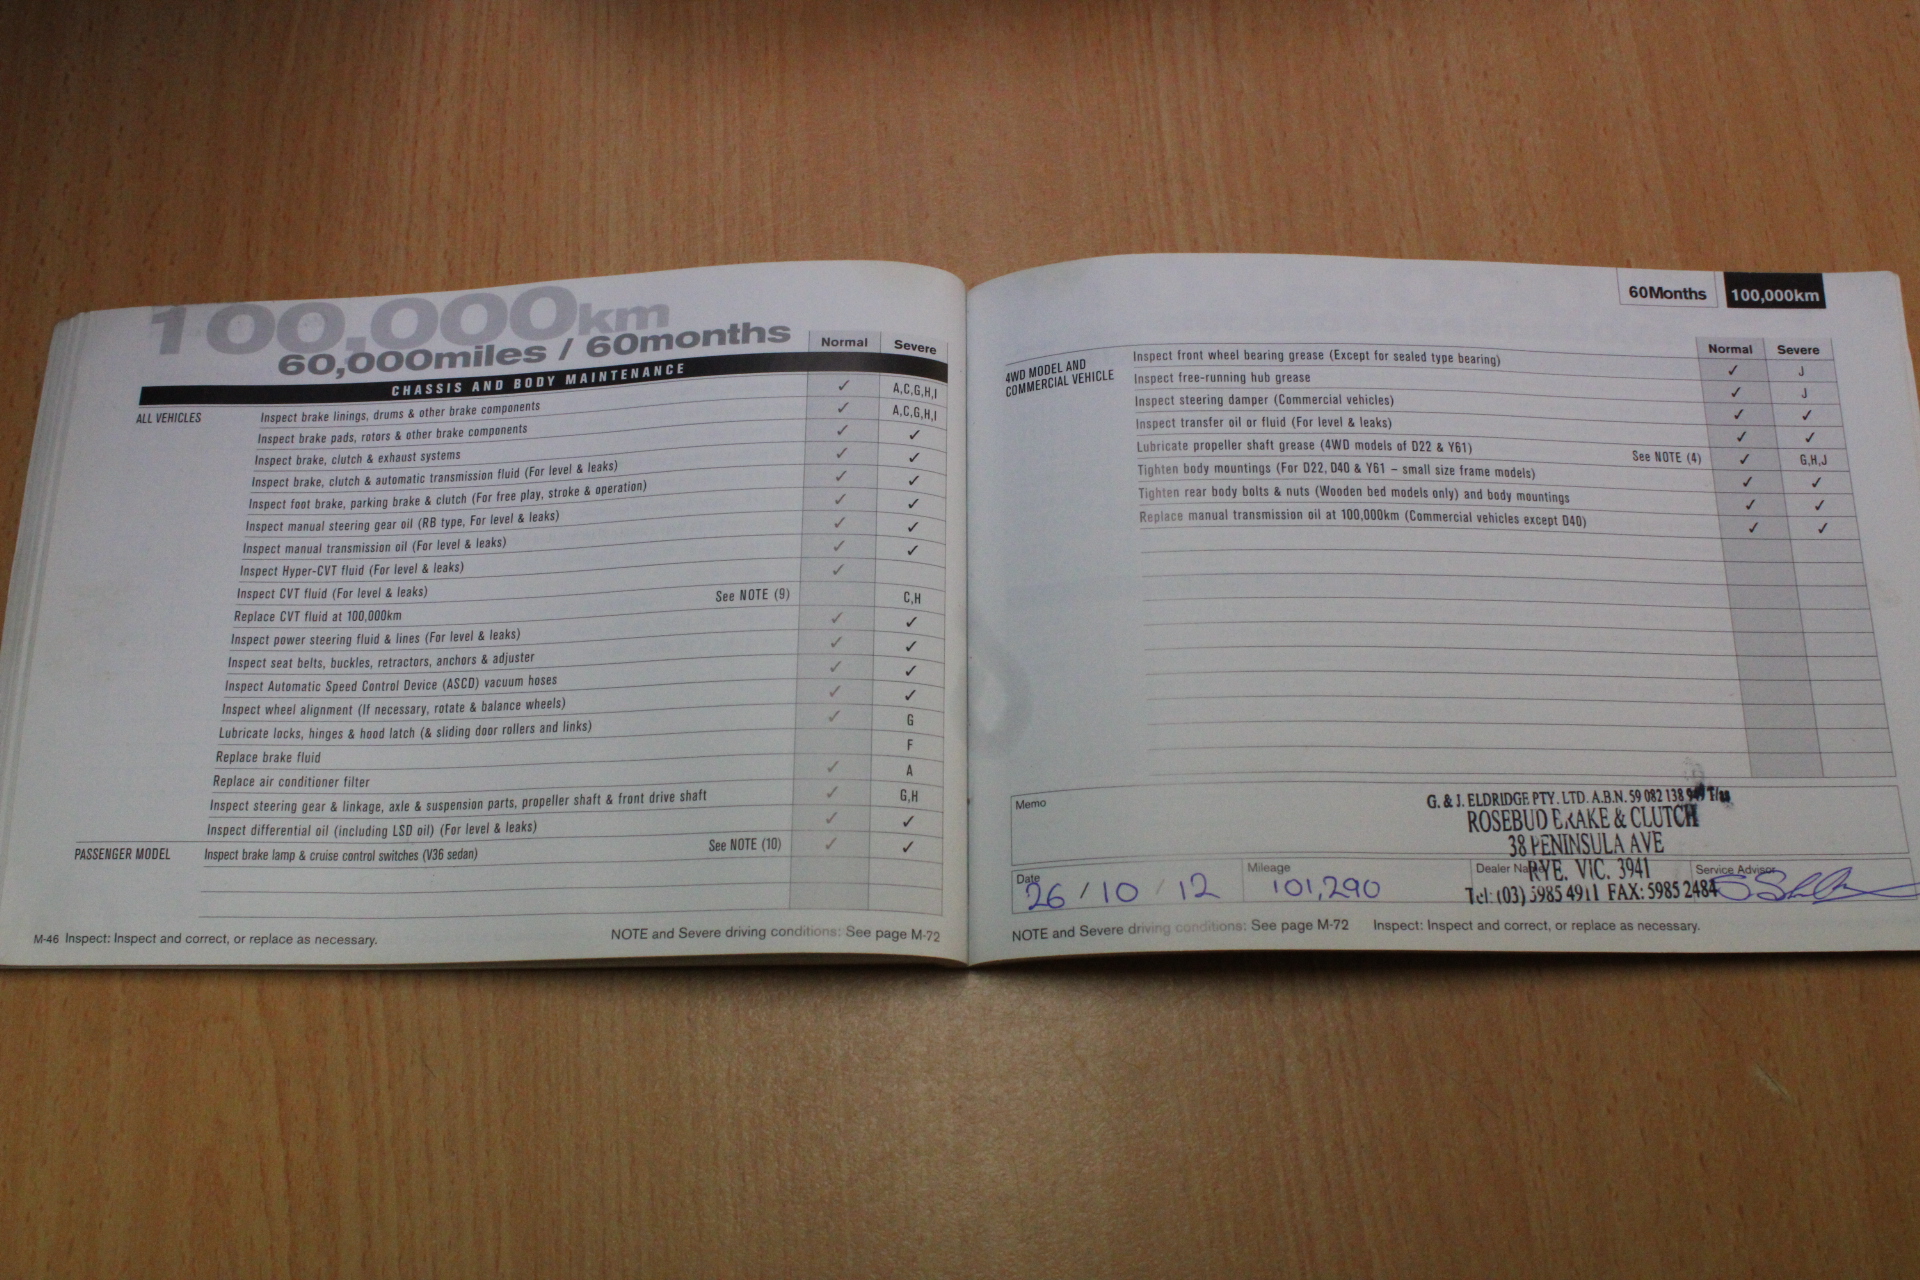 100,000km
60,000miles / 60months
Normal Severe
CHASSIS AND BODY MAINTENANCE
ALL VEHICLES Inspect brake linings, drums & other brake components ✓ A,C,G,H,I
Inspect brake pads, rotors & other brake components ✓ A,C,G,H,I
Inspect brake, clutch & exhaust systems ✓ ✓
Inspect brake, clutch & automatic transmission fluid (For level & leaks) ✓ ✓
Inspect foot brake, parking brake & clutch (For free play, stroke & operation) ✓ ✓
Inspect manual steering gear oil (RB type, For level & leaks) ✓ ✓
Inspect manual transmission oil (For level & leaks) ✓ ✓
Inspect Hyper-CVT fluid (For level & leaks) ✓ ✓
Inspect CVT fluid (For level & leaks) ✓
Replace CVT fluid at 100,000km See NOTE (9) C,H
Inspect power steering fluid & lines (For level & leaks) ✓ ✓
Inspect seat belts, buckles, retractors, anchors & adjuster ✓ ✓
Inspect Automatic Speed Control Device (ASCD) vacuum hoses ✓ ✓
Inspect wheel alignment (If necessary, rotate & balance wheels) ✓ ✓
Lubricate locks, hinges & hood latch (& sliding door rollers and links) ✓ G
Replace brake fluid F
Replace air conditioner filter ✓ A
Inspect steering gear & linkage, axle & suspension parts, propeller shaft & front drive shaft ✓ G,H
Inspect differential oil (including LSD oil) (For level & leaks) ✓ ✓
PASSENGER MODEL Inspect brake lamp & cruise control switches (V36 sedan) See NOTE (10) ✓ ✓
M-46 Inspect: Inspect and correct, or replace as necessary. NOTE and Severe driving conditions: See page M-72
60Months 100,000km
Normal Severe
4WD MODEL AND
COMMERCIAL VEHICLE
Inspect front wheel bearing grease (Except for sealed type bearing) ✓ J
Inspect free-running hub grease ✓ J
Inspect steering damper (Commercial vehicles) ✓ ✓
Inspect transfer oil or fluid (For level & leaks) ✓ ✓
Lubricate propeller shaft grease (4WD models of D22 & Y61) See NOTE (4) ✓ G,H,J
Tighten body mountings (For D22, D40 & Y61 – small size frame models) ✓ ✓
Tighten rear body bolts & nuts (Wooden bed models only) and body mountings ✓ ✓
Replace manual transmission oil at 100,000km (Commercial vehicles except D40) ✓ ✓
Memo
G. & J. ELDRIDGE PTY. LTD. A.B.N. 59 082 138 T/as
ROSEBUD BRAKE & CLUTCH
38 PENINSULA AVE
RYE. VIC. 3941
Tel: (03) 5985 4911 FAX: 5985 2484
Date 26 / 10 / 12 Mileage 101,290 Dealer Name Service Advisor
NOTE and Severe driving conditions: See page M-72 Inspect: Inspect and correct, or replace as necessary.